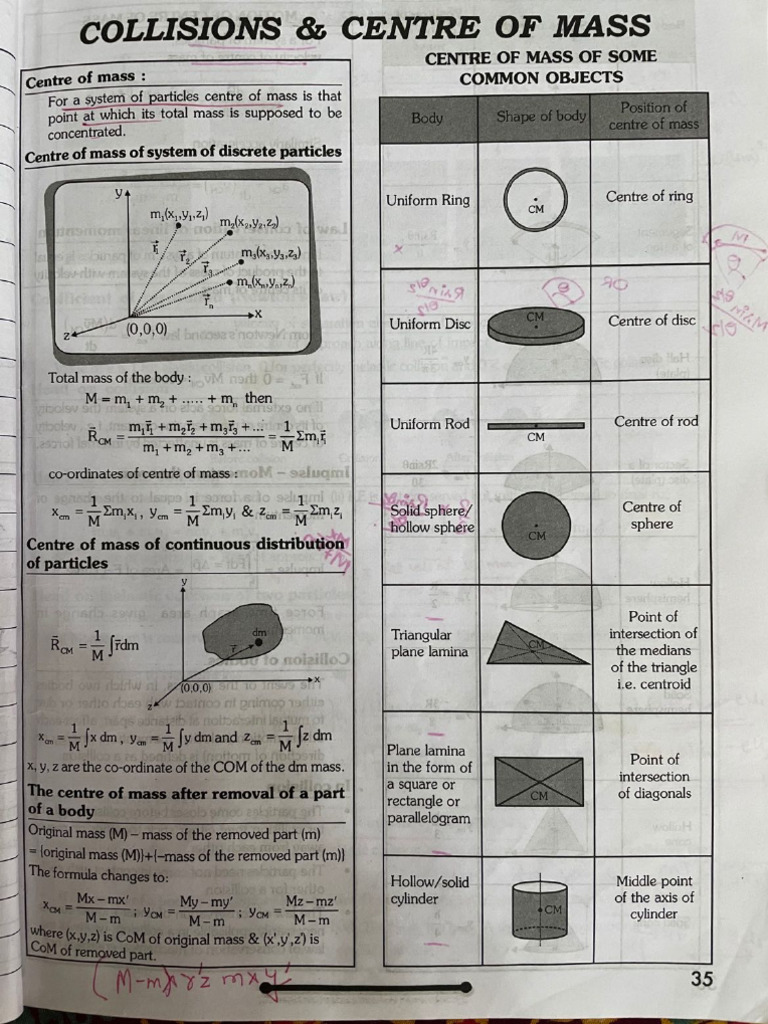 COLLISIONS & CENTRE OF MASS
Centre of mass :
For a system of particles centre of mass is that
point at which its total mass is supposed to be
concentrated.
Centre of mass of system of discrete particles
y
m₁(x₁,y₁,z₁)
m₂(x₂,y₂,z₂)
m₃(x₃,y₃,z₃)
mₙ(xₙ,yₙ,zₙ)
r⃗₁
r⃗₂
r⃗₃
r⃗ₙ
x
z
(0,0,0)
Total mass of the body :
M = m₁ + m₂ + ..... + mₙ then
R⃗_CM = (m₁r⃗₁ + m₂r⃗₂ + m₃r⃗₃ + ...)/(m₁ + m₂ + m₃ + ...) = 1/M Σmᵢr⃗ᵢ
co-ordinates of centre of mass :
x_cm = 1/M Σmᵢxᵢ , y_cm = 1/M Σmᵢyᵢ & z_cm = 1/M Σmᵢzᵢ
Centre of mass of continuous distribution
of particles
y
R⃗_CM = 1/M ∫r⃗dm
dm
r⃗
x
(0,0,0)
z
x_cm = 1/M ∫x dm , y_cm = 1/M ∫y dm and z_cm = 1/M ∫z dm
x, y, z are the co-ordinate of the COM of the dm mass.
The centre of mass after removal of a part
of a body
Original mass (M) – mass of the removed part (m)
= {original mass (M)}+{–mass of the removed part (m)}
The formula changes to:
x_CM = (Mx – mx′)/(M – m) ; y_CM = (My – my′)/(M – m) ; y_CM = (Mz – mz′)/(M – m)
where (x,y,z) is CoM of original mass & (x′,y′,z′) is
CoM of removed part.
CENTRE OF MASS OF SOME
COMMON OBJECTS
Body Shape of body Position of
centre of mass
Uniform Ring CM Centre of ring
Uniform Disc CM Centre of disc
Uniform Rod CM Centre of rod
Solid sphere/
hollow sphere
CM
Centre of
sphere
Triangular
plane lamina
CM
Point of
intersection of
the medians
of the triangle
i.e. centroid
Plane lamina
in the form of
a square or
rectangle or
parallelogram
CM
Point of
intersection
of diagonals
Hollow/solid
cylinder
CM
Middle point
of the axis of
cylinder
35